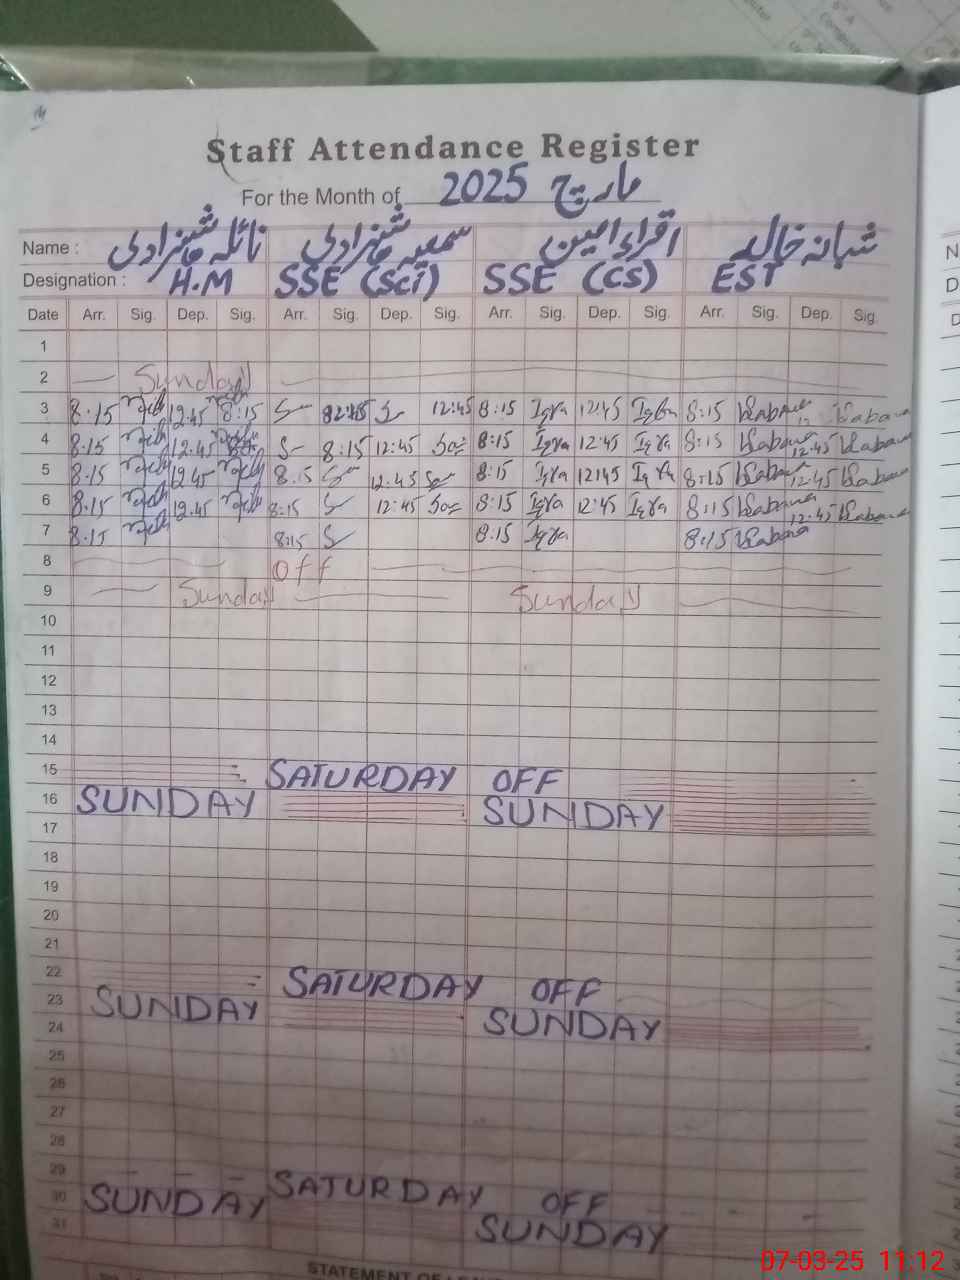 Staff Attendance Register
For the Month of مارچ 2025
Name : نائلہ شہزادی سمعیہ شہزادی اقراء امین شبانہ خالد
Designation : H.M SSE (Sci) SSE (CS) EST
Date Arr. Sig. Dep. Sig. Arr. Sig. Dep. Sig. Arr. Sig. Dep. Sig. Arr. Sig. Dep. Sig.
1
2 Sunday
3 8.15 12.45 8:15 12:45 8:15 Iqra 12:45 Iqra 8:15
4 8.15 12.45 8:15 12:45 8:15 Iqra 12:45 Iqra 8:15 12:45
5 8.15 12.45 8.15 12:45 8:15 Iqra 12:45 Iqra 8:15 12:45
6 8.15 12.45 8:15 12:45 8:15 Iqra 12:45 Iqra 8:15 12:45
7 8.15 8:15 8:15 Iqra 8:15
8 Off
9 Sunday Sunday
10
11
12
13
14
15 SATURDAY OFF
16 SUNDAY SUNDAY
17
18
19
20
21
22 SATURDAY OFF
23 SUNDAY SUNDAY
24
25
26
27
28
29 SATURDAY OFF
30 SUNDAY SUNDAY
31
07-03-25 11:12